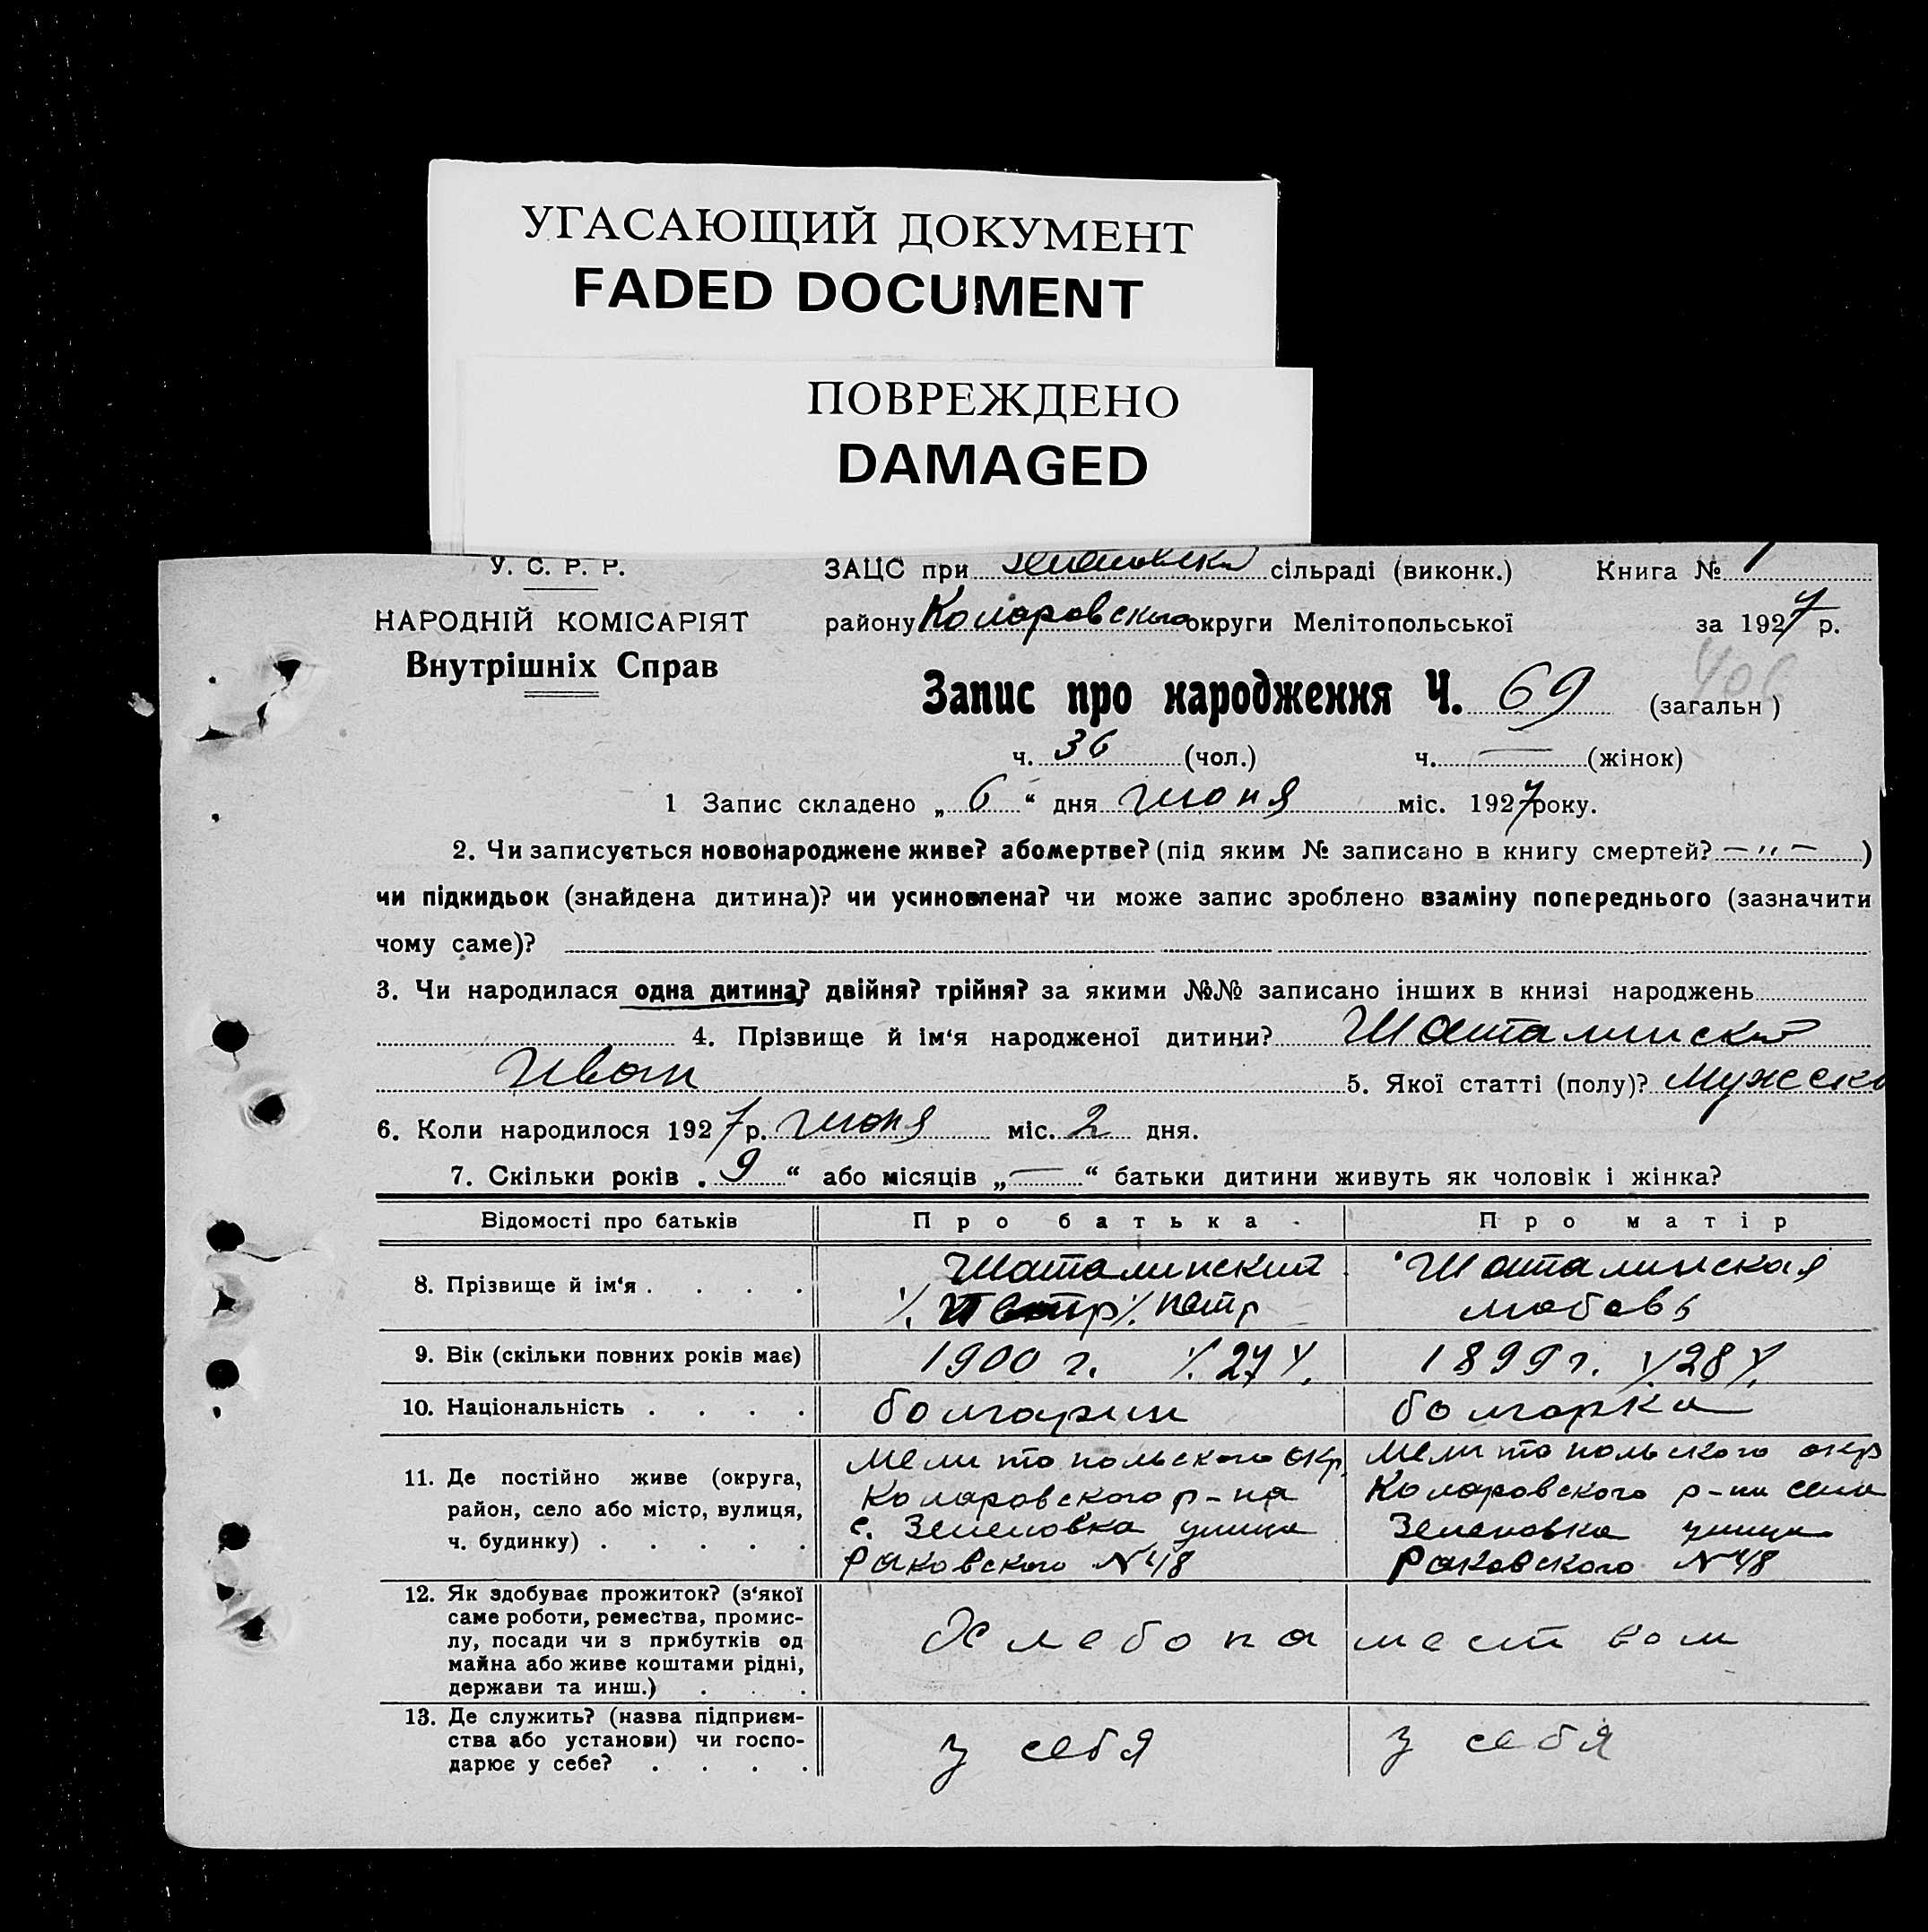 УГАСАЮЩИЙ ДОКУМЕНТ
FADED DOCUMENT
ПОВРЕЖДЕНО
DAMAGED
У. С. Р. Р.
НАРОДНІЙ КОМІСАРІЯТ
Внутрішніх Справ
ЗАЦС при Зеленовском сільраді (виконк.) Книга № 1
району Коларовского округи Мелітопольської за 1927 р.
406
Запис про народження Ч. 69 (загальн)
ч. 36 (чол.) ч. — (жінок)
1 Запис складено „ 6 “ дня июня міс. 1927 року.
2. Чи записується новонароджене живе? або мертве? (під яким № записано в книгу смертей? — ,, — )
чи підкидьок (знайдена дитина)? чи усиновлена? чи може запис зроблено взаміну попереднього (зазначити
чому саме)?
3. Чи народилася одна дитина? двійня? трійня? за якими №№ записано інших в книзі народжень
4. Прізвище й ім‘я народженої дитини? Шаталинский
Иван 5. Якої статті (полу)? Мужеско
6. Коли народилося 1927 р. июня міс. 2 дня.
7. Скільки років „ 9 “ або місяців „ — “ батьки дитини живуть як чоловік і жінка?
Відомості про батьків Про батька Про матір
8. Прізвище й ім‘я . . . . Шаталинский Шаталинская
⁒ Петр ⁒ Петр Любовь
9. Вік (скільки повних років має) 1900 г. ⁒ 27 ⁒ 1899 г. ⁒ 28 ⁒
10. Національність . . . . болгарин болгарка
11. Де постійно живе (округа, район, село або місто, вулиця, ч. будинку) . . . . .
Мелитопольского окр.
Коларовского р-на
с. Зеленовка улица
Раковского N 48
Мелитопольского окр
Коларовского р-на села
Зеленовка улица
Раковского N 48
12. Як здобуває прожиток? (з‘якої
саме роботи, ремества, промис-
лу, посади чи з прибутків од
майна або живе коштами рідні,
держави та инш.) . . .
Хлебопашеством
13. Де служить? (назва підприєм-
ства або установи) чи госпо-
дарює у себе? . . . .
у себя у себя